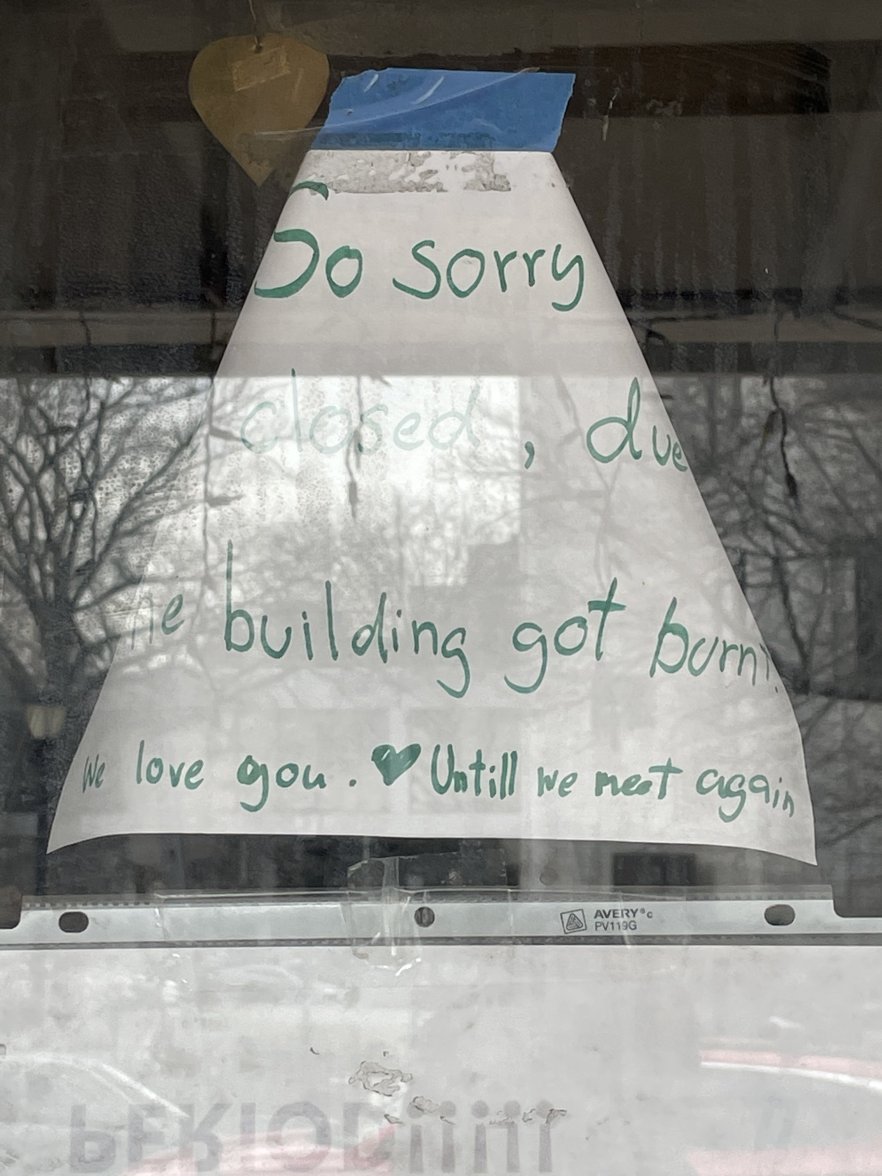 So sorry
closed, due
he building got burnt.
We love you. ♥ Untill we meet again
AVERY® c
PV119G
PERIOD!!!!!